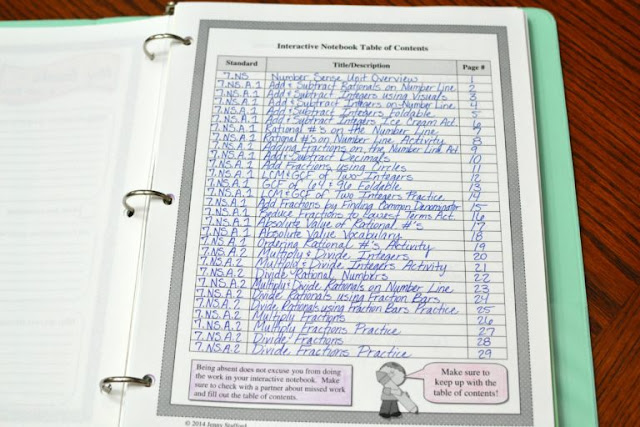 Interactive Notebook Table of Contents
Standard Title/Description Page #
7.NS Number Sense Unit Overview 1
7.NS.A.1 Add & Subtract Rationals on Number Line 2
7.NS.A.1 Add & Subtract Integers using Visuals 3
7.NS.A.1 Add & Subtract Integers on Number Line 4
7.NS.A.1 Add & Subtract Integers Foldable 5
7.NS.A.1 Add & Subtract Integers Ice Cream Act. 6
7.NS.A.1 Rational #'s on the Number Line 7
7.NS.A.1 Rational #'s on Number Line Activity 8
7.NS.A.1 Adding Fractions on the Number Line Act. 9
7.NS.A.1 Add & Subtract Decimals 10
7.NS.A.1 Add Fractions using Circles 11
7.NS.A.1 LCM & GCF of Two Integers 12
7.NS.A.1 GCF of 64 & 96 Foldable 13
7.NS.A.1 LCM & GCF of Two Integers Practice 14
7.NS.A.1 Add Fractions by Finding Common Denominator 15
7.NS.A.1 Reduce Fractions to Lowest Terms Act. 16
7.NS.A.1 Absolute Value of Rational #'s 17
7.NS.A.1 Absolute Value Vocabulary 18
7.NS.A.1 Ordering Rational #'s Activity 19
7.NS.A.2 Multiply & Divide Integers 20
7.NS.A.2 Multiply & Divide Integers Activity 21
7.NS.A.2 Divide Rational Numbers 22
7.NS.A.2 Multiply & Divide Rationals on Number Line 23
7.NS.A.2 Divide Rationals using Fraction Bars 24
7.NS.A.2 Divide Rationals using Fraction Bars Practice 25
7.NS.A.2 Multiply Fractions 26
7.NS.A.2 Multiply Fractions Practice 27
7.NS.A.2 Divide Fractions 28
7.NS.A.2 Divide Fractions Practice 29
Being absent does not excuse you from doing
the work in your interactive notebook. Make
sure to check with a partner about missed work
and fill out the table of contents.
Make sure to
keep up with the
table of contents!
© 2014 Jenny Stafford